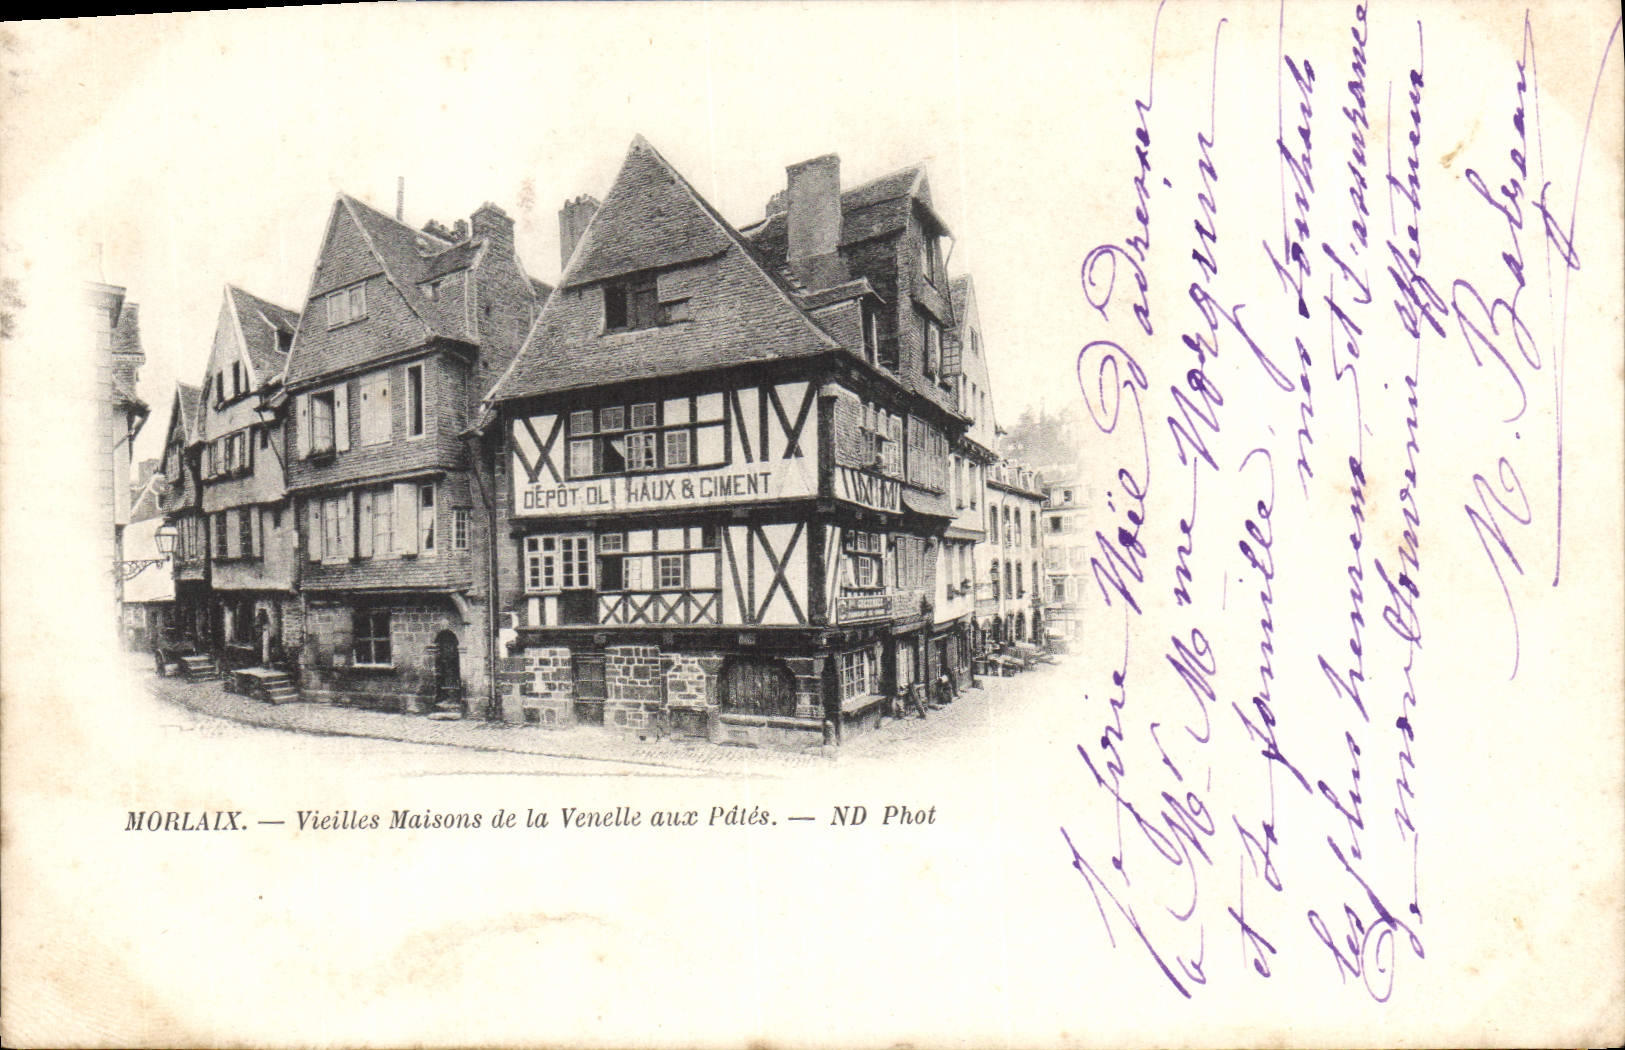 DÉPÔT DE CHAUX & CIMENT
MORLAIX. — Vieilles Maisons de la Venelle aux Pâtés. — ND Phot
Je prie Noël d'adresser
à Mr & Mme Morquin
et sa famille,
mes souhaits
les plus heureux et l'assurance
de mon souvenir affectueux
M. Barbeau